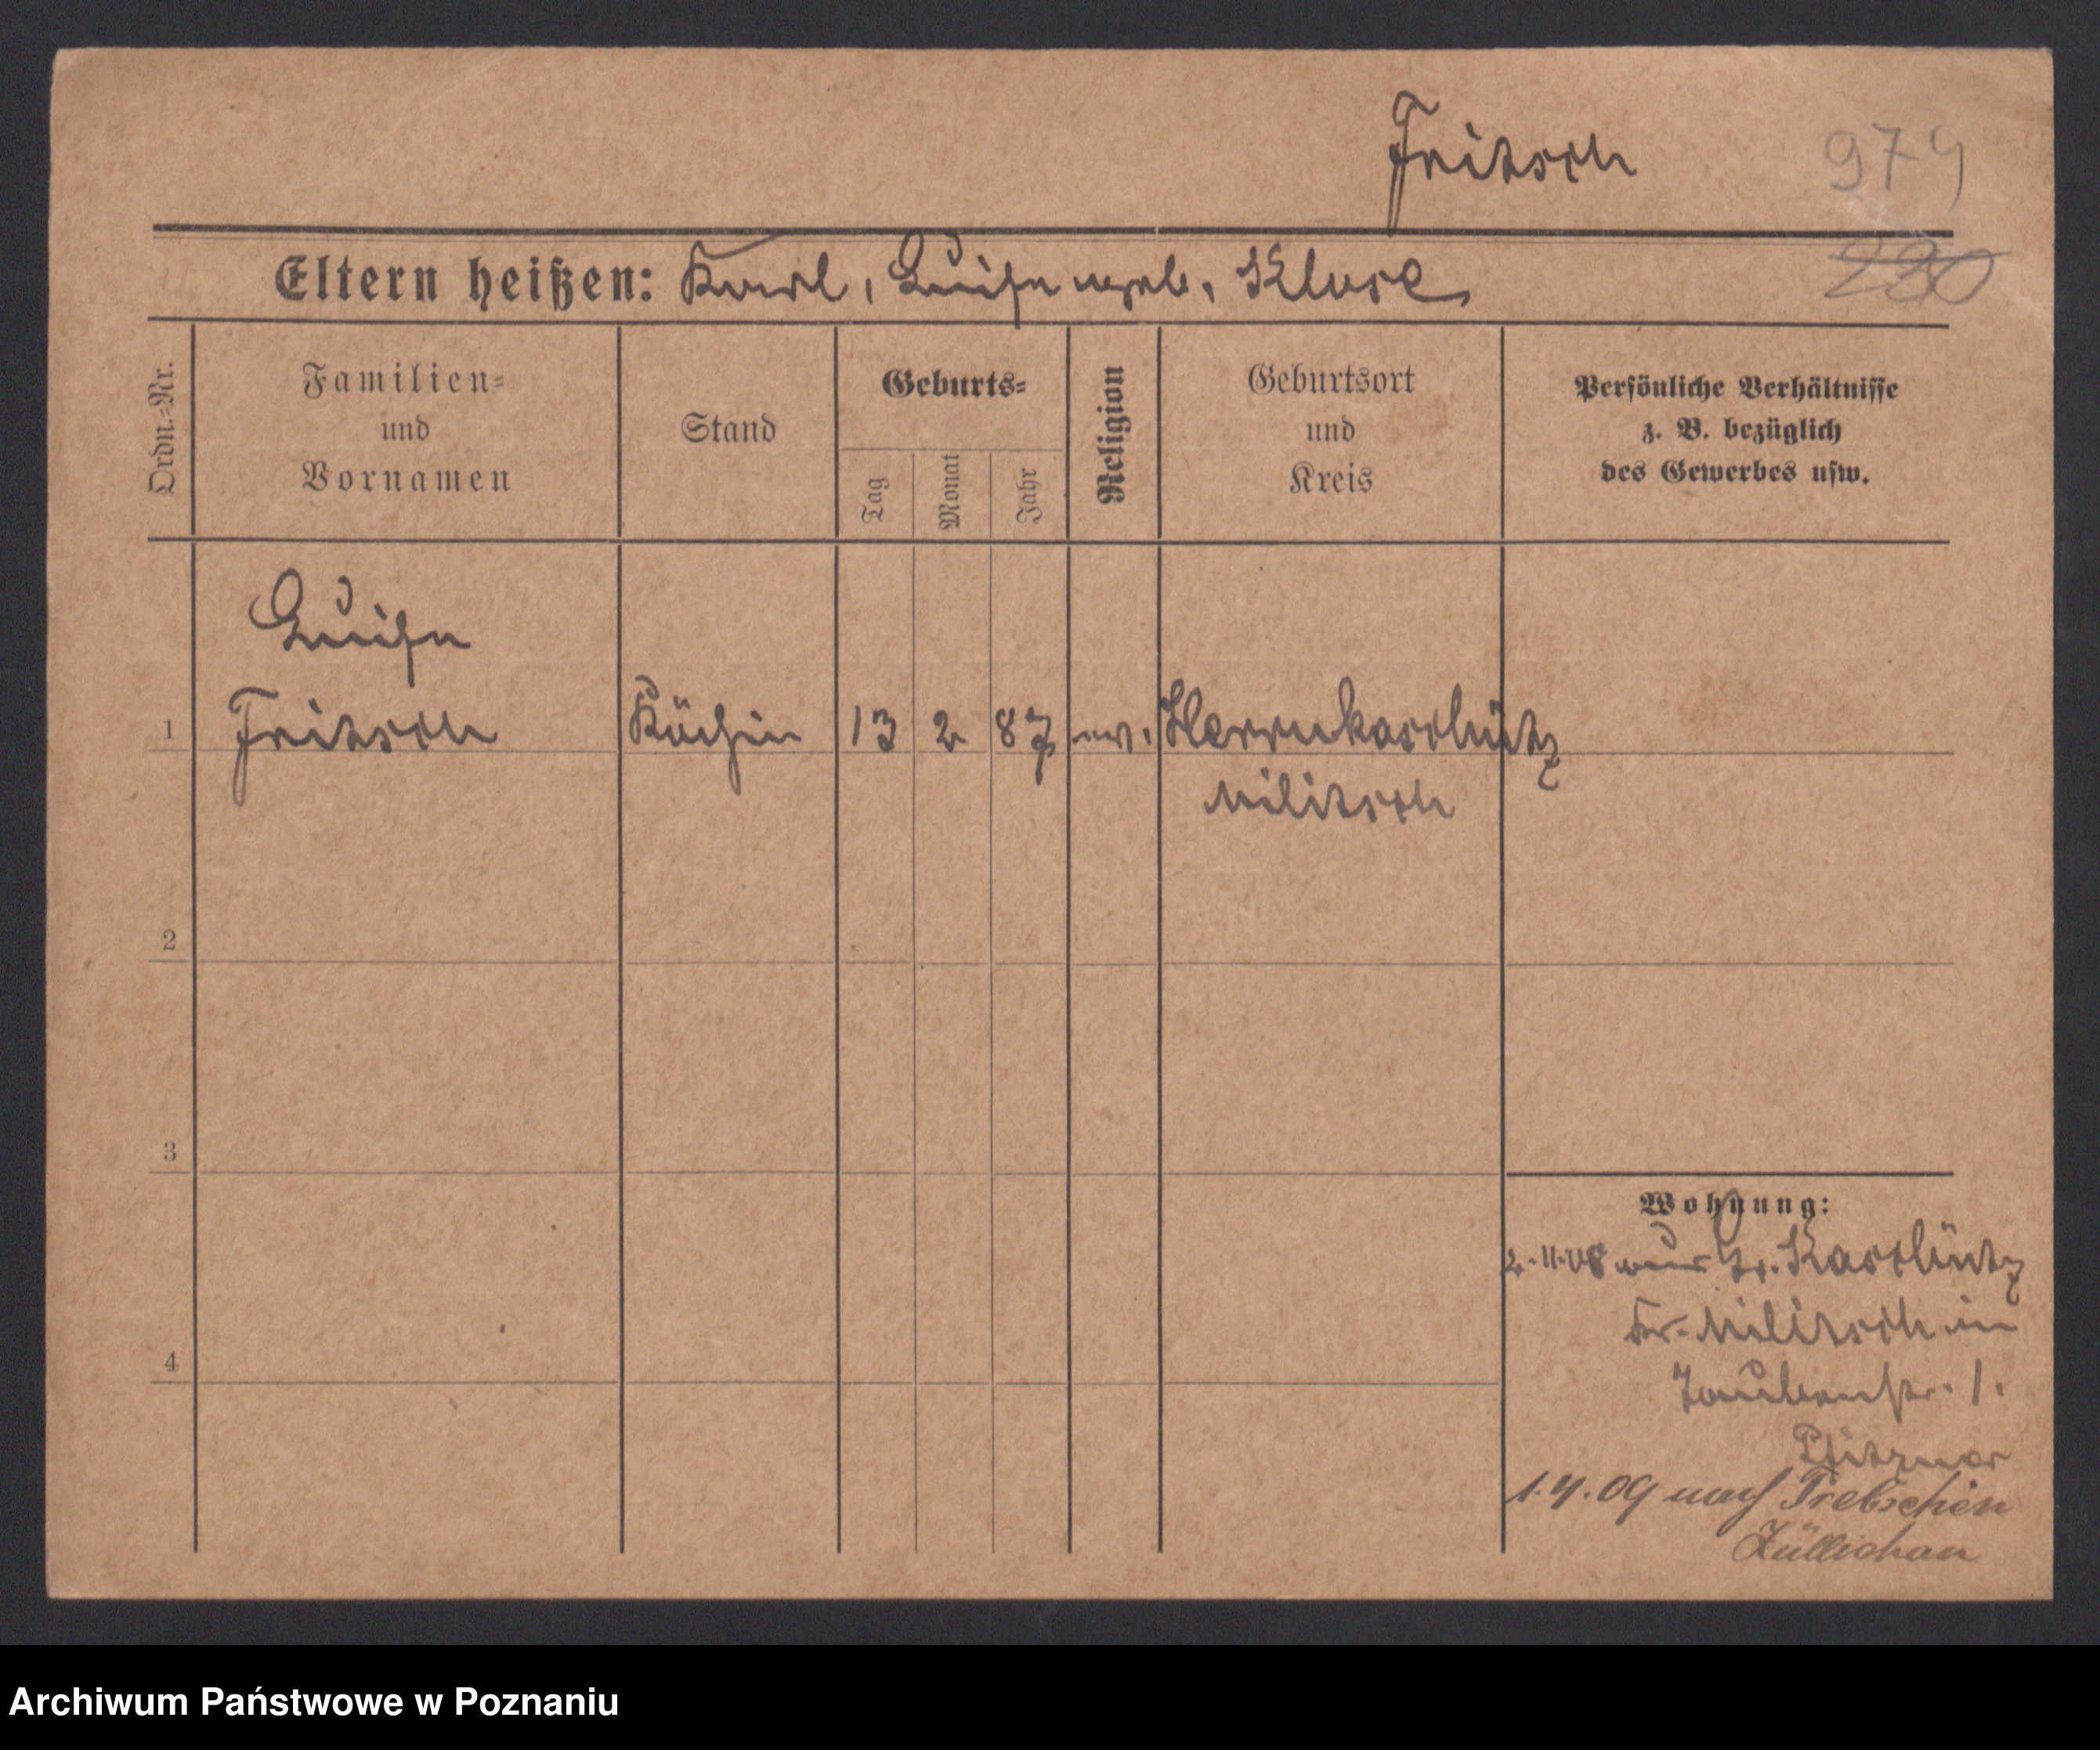 Fritsch
974
230
Eltern heißen: Karl, Luise geb. Klose
Ordn.-Nr.
Familien-
und
Vornamen
Stand
Geburts-
Tag
Monat
Jahr
Religion
Geburtsort
und
Kreis
Persönliche Verhältnisse
z. B. bezüglich
des Gewerbes usw.
Luise
1 Fritsch Köchin 13 2 87 ev. Herrnkaschütz
Militsch
2
3
4
Wohnung:
2.11.08 aus Gr. Kaschütz
Kr. Militsch in
Taubenstr. 1.
1.4.09 nach Trebschen
Züllichau
Archiwum Państwowe w Poznaniu